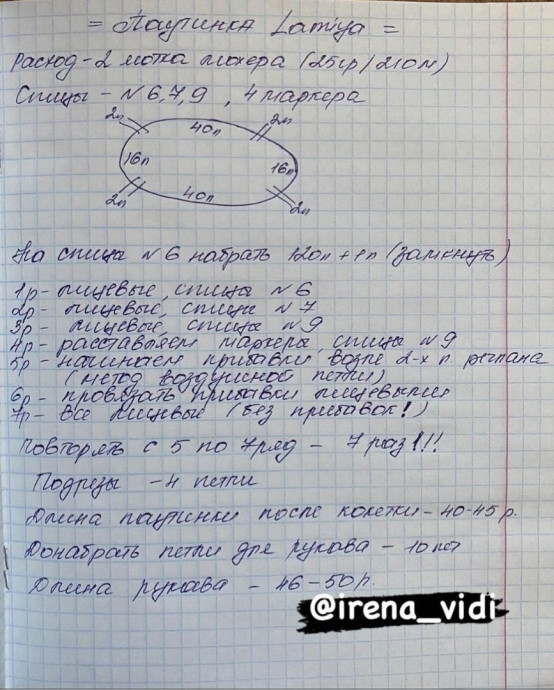 = Паутинка Lamiya =
Расход - 2 мотка мохера (25гр/210м)
Спицы - N 6,7,9 , 4 маркера
2п 40п 2п
16п 16п
2п 40п 2п
На спицы N 6 набрать 120п + 1п (замкнуть)
1р - лицевые, спица N 6
2р - лицевые, спица N 7
3р - лицевые, спица N 9
4р - расставляем маркера, спица N 9
5р - начинаем прибавки возле 2-х п реглана
(метод воздушной петли)
6р - провязать прибавки лицевыми
7р - все лицевые (без прибавок!)
Повторять с 5 по 7 ряд - 7 раз!!!
Подрезы - 4 петли
Длина паутинки после кокетки - 40-45 р.
Донабрать петли для рукава - 10 пет
Длина рукава - 46-50р.
@irena_vidi